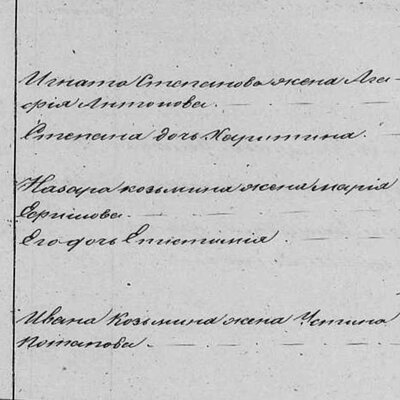 Игната Степанова жена Ага-
фія Антонова.
Степана дочь Харитина.
Назара козьмина жена марія
Ефимова.
Его дочь Епистимія.
Ивана Козьмина жена Устина
Потапова.